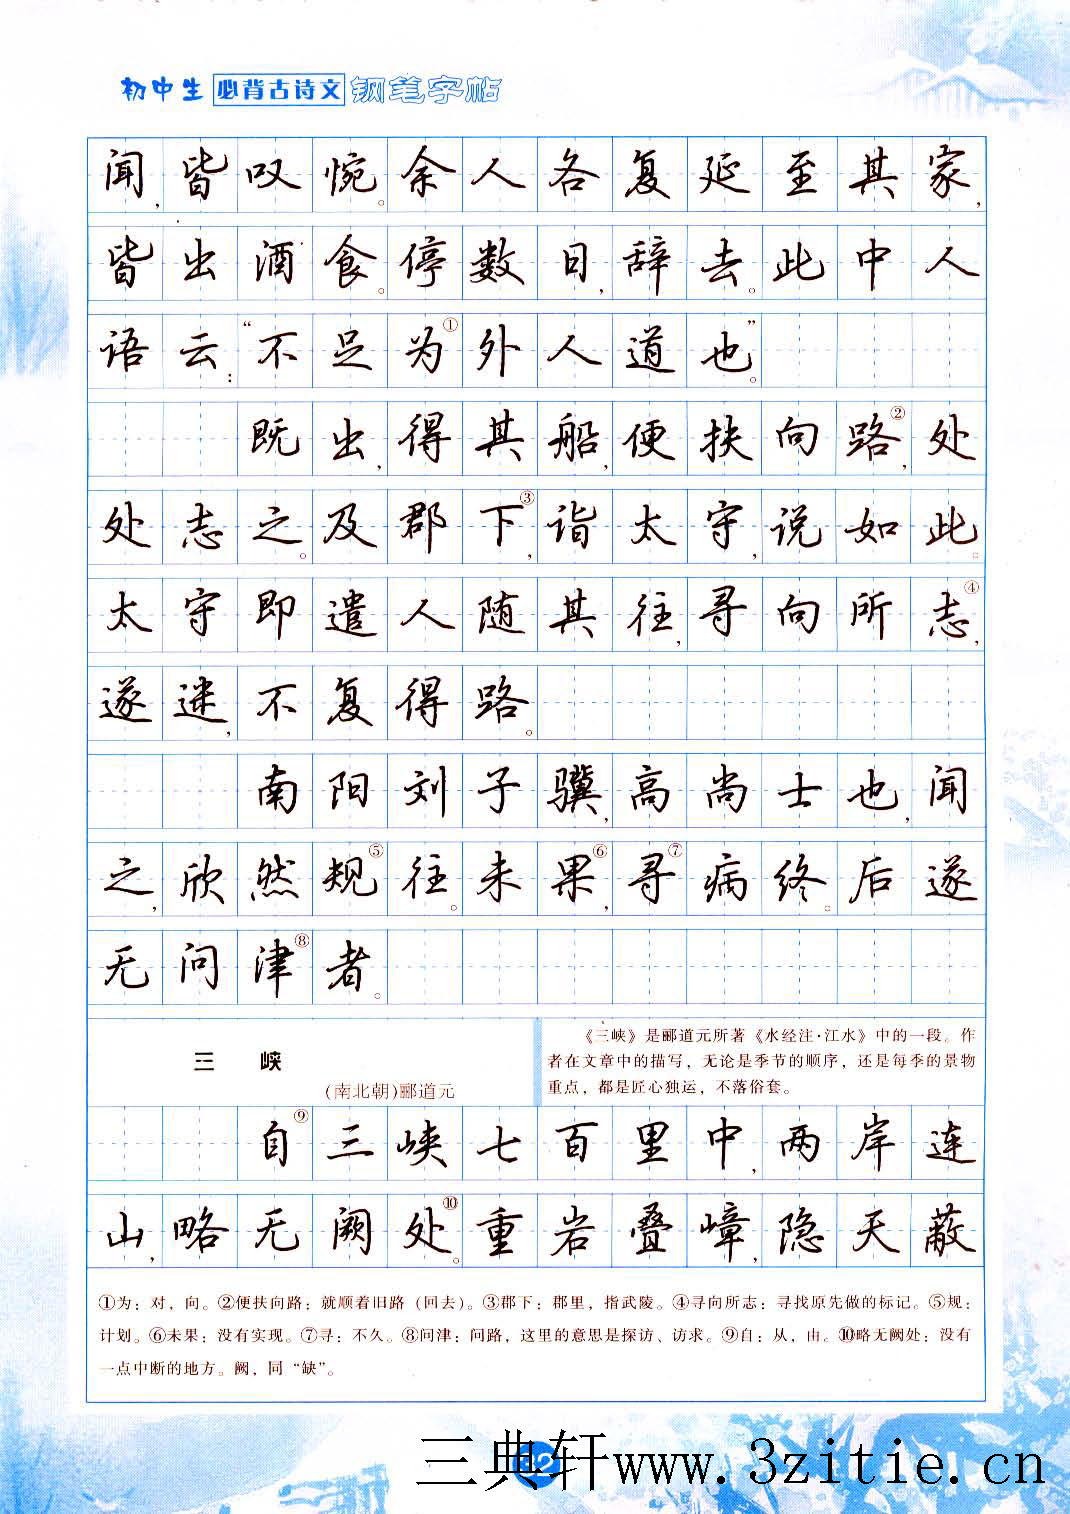 初中生 必背古诗文 钢笔字帖
闻，皆叹惋。余人各复延至其家，
皆出酒食。停数日，辞去。此中人
语云：“不足为①外人道也。”
既出，得其船，便扶向路②，处
处志之。及郡下③，诣太守，说如此。
太守即遣人随其往，寻向所志④，
遂迷，不复得路。
南阳刘子骥，高尚士也，闻
之，欣然规⑤往。未果⑥，寻⑦病终。后遂
无问津⑧者。
三 峡
(南北朝)郦道元
《三峡》是郦道元所著《水经注·江水》中的一段。作
者在文章中的描写，无论是季节的顺序，还是每季的景物
重点，都是匠心独运，不落俗套。
自⑨三峡七百里中，两岸连
山，略无阙处⑩。重岩叠嶂，隐天蔽
①为：对，向。②便扶向路：就顺着旧路（回去）。③郡下：郡里，指武陵。④寻向所志：寻找原先做的标记。⑤规：
计划。⑥未果：没有实现。⑦寻：不久。⑧问津：问路，这里的意思是探访、访求。⑨自：从，由。⑩略无阙处：没有
一点中断的地方。阙，同“缺”。
32
三典轩www.3zitie.cn